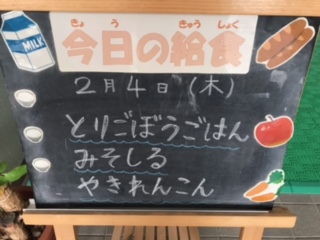 きょう きゅうしょく
今日の給食
MILK
2月4日(木)
とりごぼうごはん
みそしる
やきれんこん